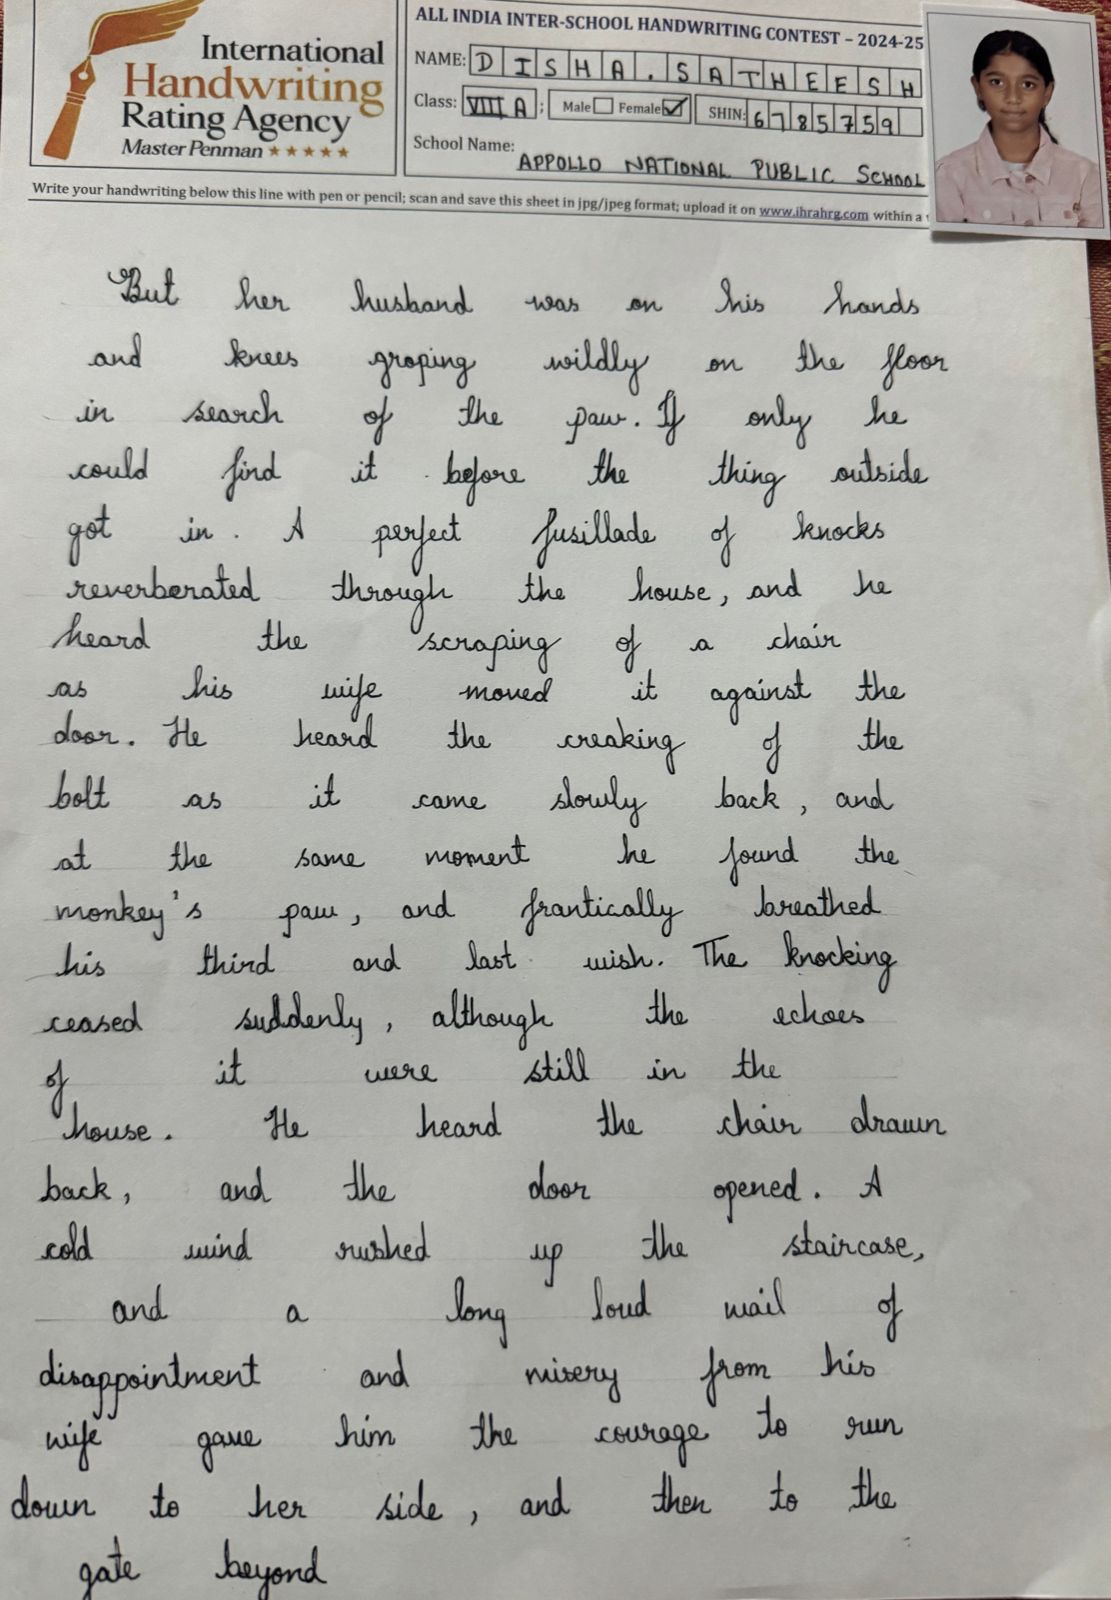 International
Handwriting
Rating Agency
Master Penman ★★★★★
ALL INDIA INTER-SCHOOL HANDWRITING CONTEST – 2024-25
NAME: DISHA.SATHEESH
Class: VIII A ; Male Female ✓ SHIN: 6785759
School Name: APPOLLO NATIONAL PUBLIC SCHOOL
Write your handwriting below this line with pen or pencil; scan and save this sheet in jpg/jpeg format; upload it on www.ihrahrg.com within a
But her husband was on his hands
and knees groping wildly on the floor
in search of the paw. If only he
could find it before the thing outside
got in. A perfect fusillade of knocks
reverberated through the house, and he
heard the scraping of a chair
as his wife moved it against the
door. He heard the creaking of the
bolt as it came slowly back, and
at the same moment he found the
monkey's paw, and frantically breathed
his third and last wish. The knocking
ceased suddenly, although the echoes
of it were still in the
house. He heard the chair drawn
back, and the door opened. A
cold wind rushed up the staircase,
and a long loud wail of
disappointment and misery from his
wife gave him the courage to run
down to her side, and then to the
gate beyond